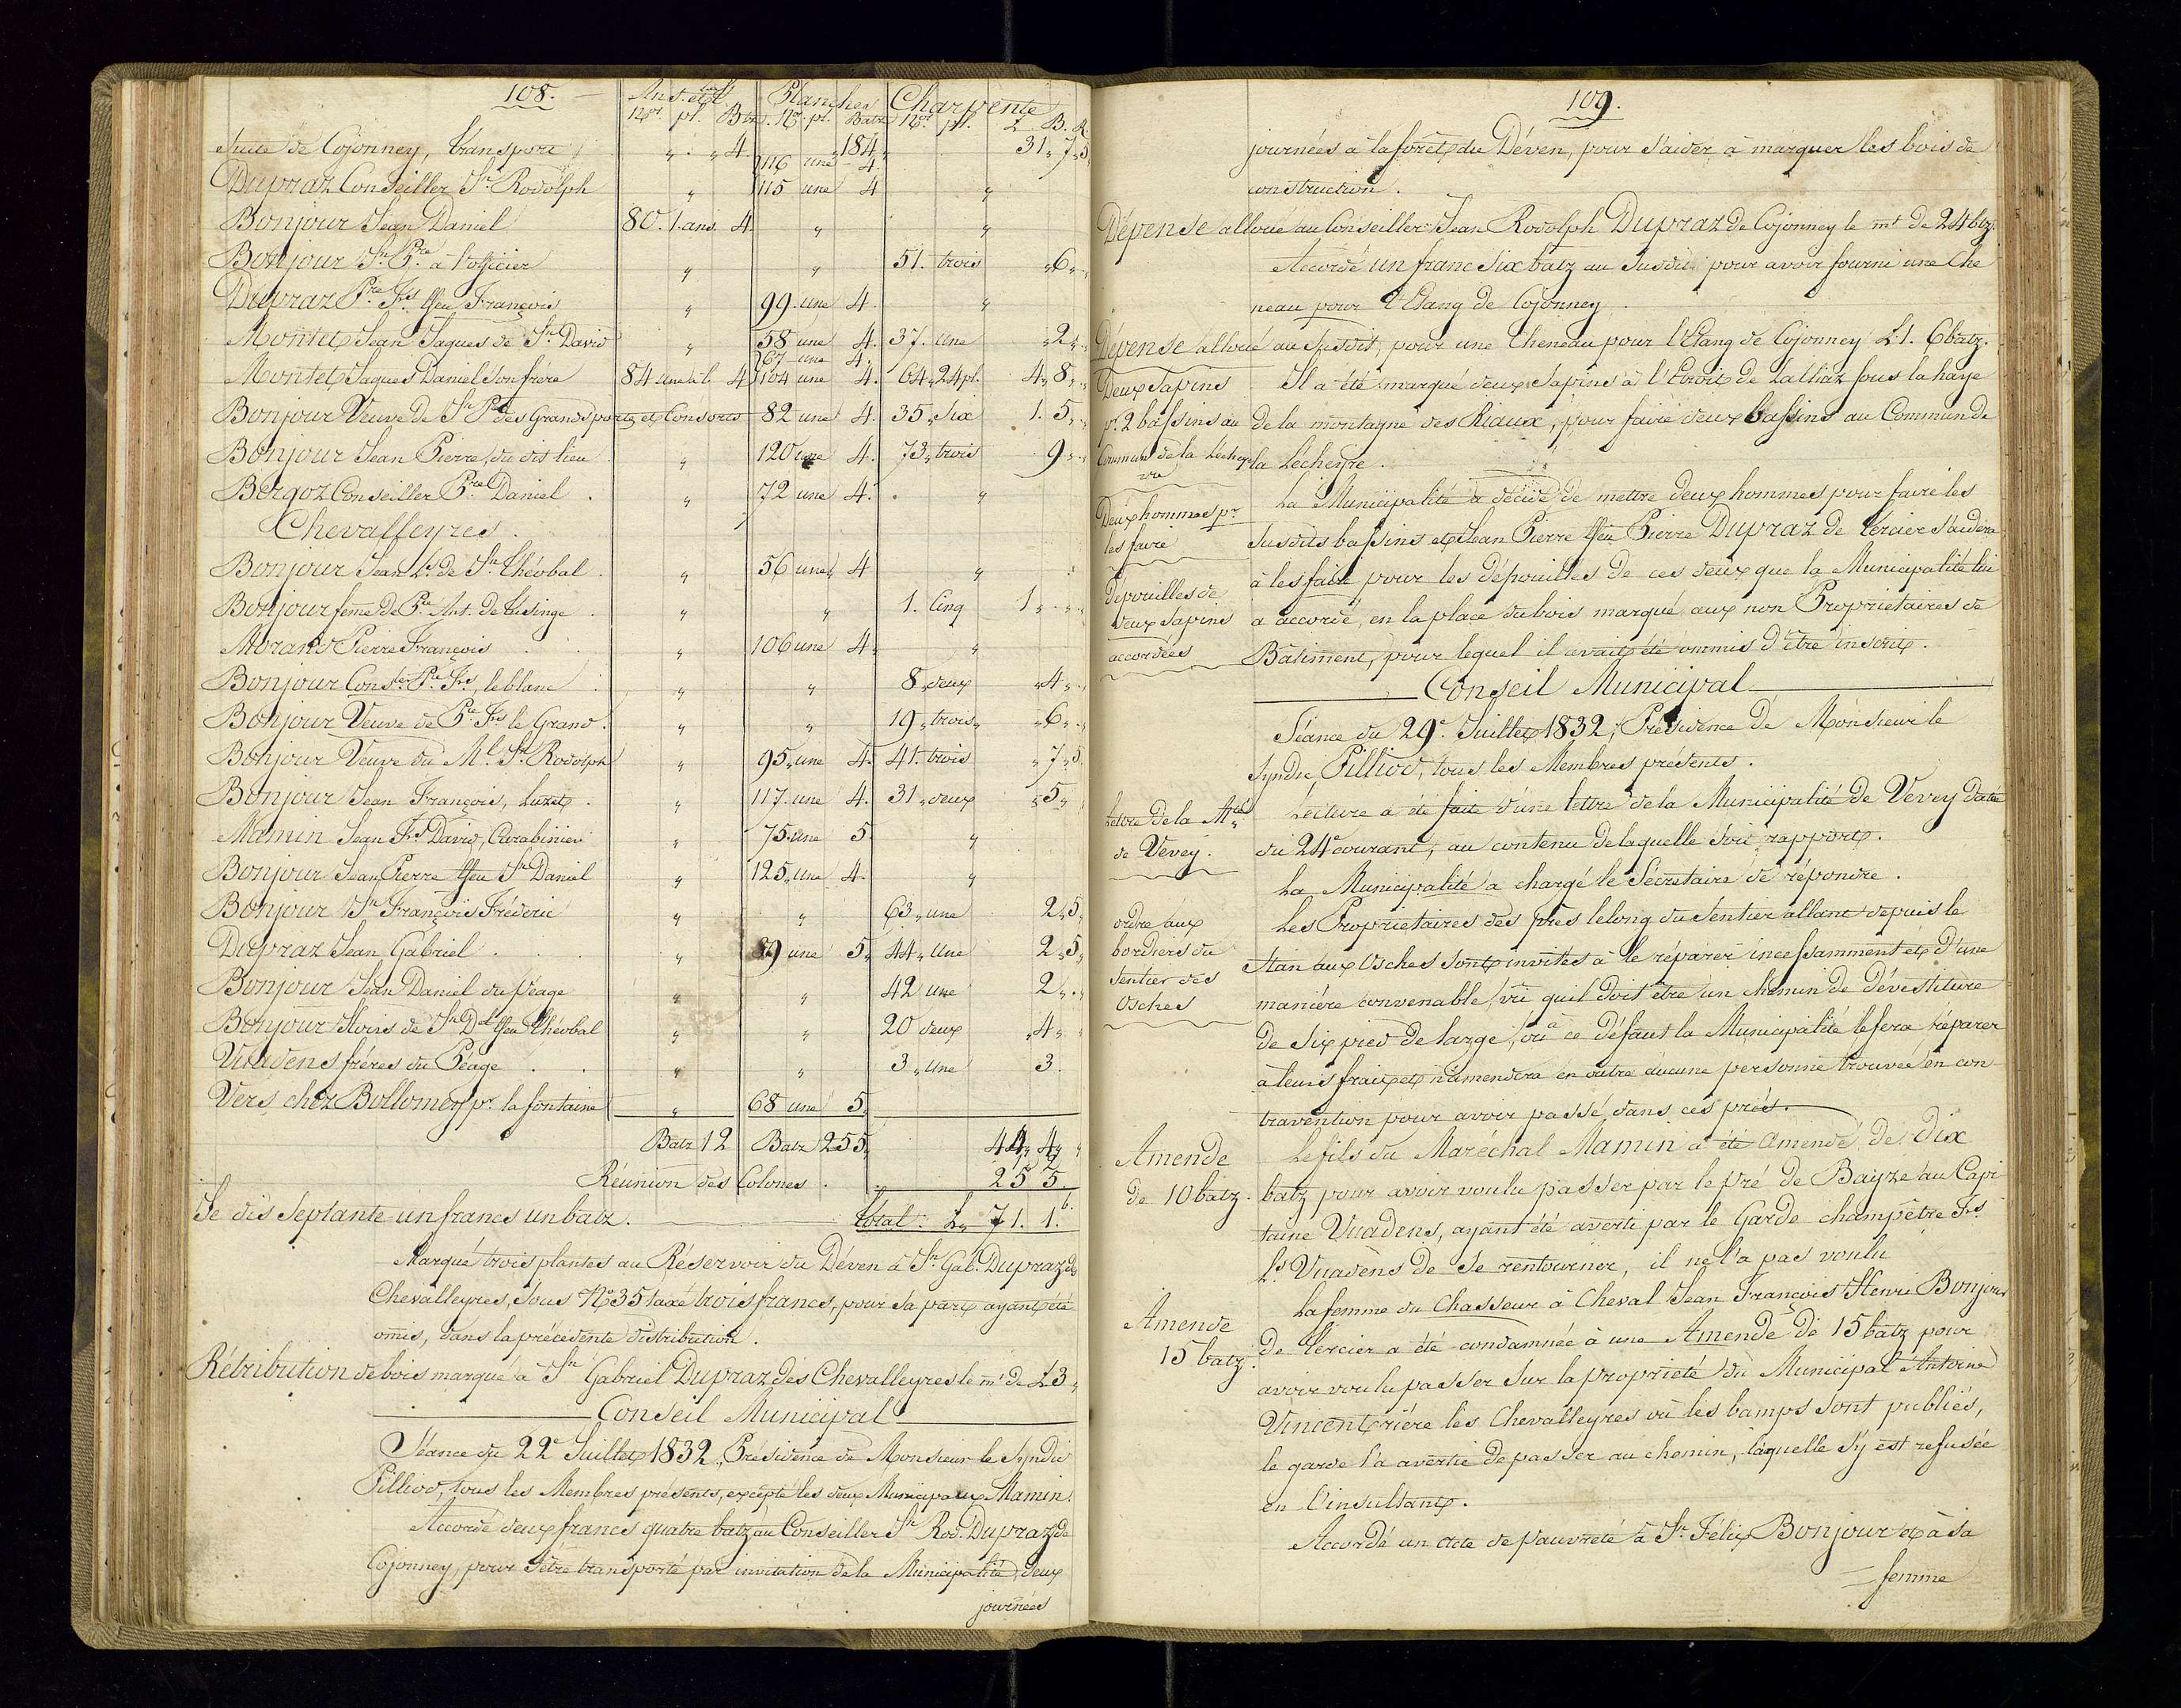 108.
Planches Charpente
Nos. pl. Batz. No. pl. Batz No. pl. L. B. R.
Suite de Cojonney, transport " " 4. " 184 " 31 " 7 " 5
116 une 4.
Dupraz Conseiller Jn. Rodolph " 115 une 4 "
Bonjour Jean Daniel 80. 1. ans. 4. " "
Bonjour Jn. Pre. à l'officier " " 51. trois " 6 " "
Dupraz Pre. Frs. ffeu François " 99. une 4. "
Montet Jean Jaques de Jn. David " 58 une 4. 37. une " 2 " "
67 une 4.
Montet Jaques Daniel son frère 84 4 104 une 4. 64 " 24 pl. 4 " 8 " "
Bonjour Veuve de Jn. Pre. des Grands portes et Consorts 82 une 4. 35 " Six 1. 5 " "
Bonjour Jean Pierre, du dit lieu " 120 une 4. 73 " trois 9 " "
Bergoz Conseiller Pre. Daniel . " 72 une 4. "
Chevalleyres.
Bonjour Jean Ls. de Jn. Théobal . " 56 une 4 "
Bonjour feme de Pre. Ant. de Lusinge . " " 1. Cinq 1 " " "
Morand Pierre François . . " 106 une 4 "
Bonjour Conser. Pre. Frs., leblanc . " " 8 " deux " 4 " "
Bonjour Veuve de Pre. Frs. le Grand . " " 19 " trois " " 6 " "
Bonjour Veuve du Ml. Jn. Rodolph " 95 " une 4. 41. trois " 7 " 5.
Bonjour Jean François, Luzet . " 117. une 4. 31 " deux " 5 " "
Mamin Jean Frs. David, Carabinier " 75. une 5. "
Bonjour Jean Pierre ffeu Jn. Daniel " 125. une 4. "
Bonjour Jn. François Fréderic " " 63 " une 2 " 5 "
Dupraz Jean Gabriel . . . " 89 une 5 " 44 " une 2 " 5 "
Bonjour Jean Daniel du péage " " 42 une 2 " . "
Bonjour Hoirs de Jn. Del. ffeu Théobal " " 20 deux " 4 " "
Vuadens frères du Péage . . " " 3 " une 3.
Vers chez Bollomey pr. la fontaine " 68 une 5.
Batz 12 Batz 255 " 44 " 4 " "
Réunion des Colones . " 25 5.
Je dis Septante un francs un batz . Total . L " 71. 1. b.
Marqué trois plantes au Réservoir du Déven à Jn. Gab. Dupraz de
Chevalleyres, Sous No. 35 taxé trois francs, pour Sa part ayant été
omis, dans la précédente distribution .
Rétribution de bois marqué à Jn. Gabriel Dupraz des Chevalleyres le mt. de L 3 "
Conseil Municipal
Séance du 22e Juillet 1832, Présidence de Monsieur le Syndic
Pilliod, tous les Membres présents, excepté les deux Municipaux Mamin.
Accordé deux francs quatre batz au Conseiller Jn. Rod. Dupraz de
Cojonney, pour s'être transporté par invitation de la Municipalité, deux
journées
109.
journées à la forêt du Déven, pour s'aider à marquer les bois de
construction .
Dépense alloué au Conseiller Jean Rodolph Dupraz de Cojonney le mt de 24 btz.
Accordé un franc Six batz au Susdit pour avoir fourni une Che
neau pour l'Etang de Cojonney .
Dépense alloué au Susdit, pour une Cheneau pour l'Etang de Cojonney L 1. 6 batz.
Deux Sapins
pr. 2 bassins au
Commun de la Lécheyre
Il a été marqué deux Sapins à l'Etroit de Lalliaz sous la haye
de la montagne des Riaux, pour faire deux bassins au Commun de
la Lécheyre .
Deux hommes pr.
les faire
La Municipalité a décidé de mettre deux hommes pour faire les
Susdits bassins et Jean Pierre ffeu Pierre Dupraz de Tercier S'aidera
dépouilles de
deux Sapins
accordées
à les faire pour les dépouilles de ces deux que la Municipalité lui
a accordé, en la place du bois marqué aux non Propriétaires de
Bâtiment, pour lequel il avait été ommis d'être inscrit .
Conseil Municipal
Séance du 29e. Juillet 1832, Présidence de Monsieur le
Syndic Pilliod, tous les Membres présents .
Lettre de la Mté
de Vevey .
Lecture a été faite d'une lettre de la Municipalité de Vevey datée
du 24 courant, au contenu de laquelle soit rapport .
La Municipalité a chargé le Sécretaire de répondre .
ordre aux
bordiers du
sentier des
Osches
Les Propriétaires des prés le long du Sentier allant depuis le
Stan aux Osches sont invités à le réparer incessamment et d'une
manière convenable, vû qu'il doit être un chemin de dévestiture
de Six pied de large, où à ce défaut la Municipalité le fera réparer
à leurs frais et n'amendera en outre aucune personne trouvée en con
travention pour avoir passé dans ces prés.
Amende
de 10 batz.
Le fils du Maréchal Mamin a été amendé de dix
batz pour avoir voulu passer par le pré de Bayze au Capi
taine Vuadens, ayant été averti par le Garde champêtre Frs.
Ls. Vuadens de se rentourner, il ne l'a pas voulu
Amende
15 batz.
La femme du Chasseur à Cheval Jean François Henri Bonjour
de Tercier a été condamnée à une Amende de 15 batz pour
avoir voulu passer Sur la propriété du Municipal Antoine
Vincent rière les Chevalleyres où les bamps sont publiés,
le garde l'a avertie de passer au chemin, laquelle S'y est refusée
en l'insultant .
Accordé un acte de pauvreté à Jn. Félix Bonjour et à sa
femme